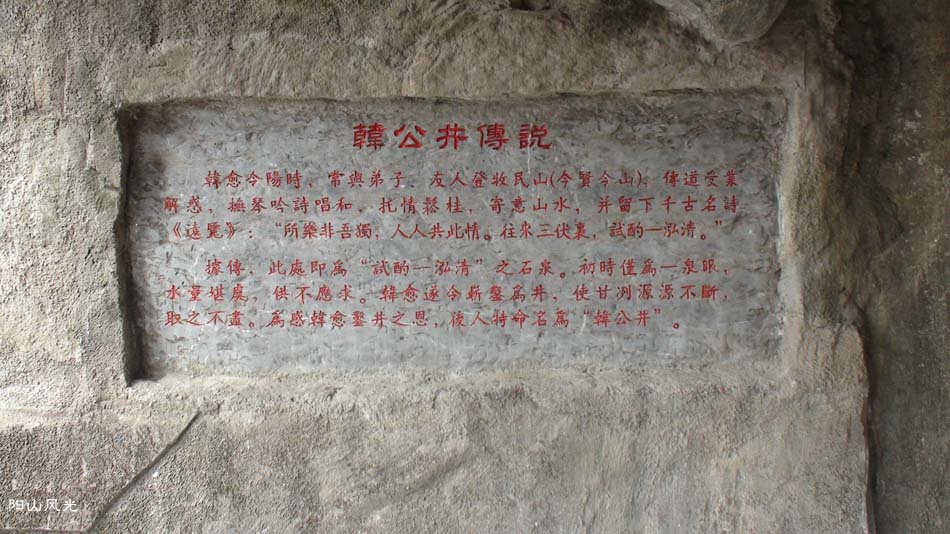 韓公井傳説
韓愈令陽時、常與弟子、友人登牧民山(今賢令山)，傳道受業
解惑，撫琴吟詩唱和，托情鬆桂，寄意山水，并留下千古名詩
《遠覽》：“所樂非吾獨，人人共此情。往來三伏裏，試酌一泓清。”
據傳，此處即爲“試酌一泓清”之石泉。初時僅爲一泉眼，
水量堪虞，供不應求。韓愈遂令嶄鑿爲井，使甘冽源源不斷，
取之不盡。爲感韓愈鑿井之恩，後人特命名爲“韓公井”。
阳山风光